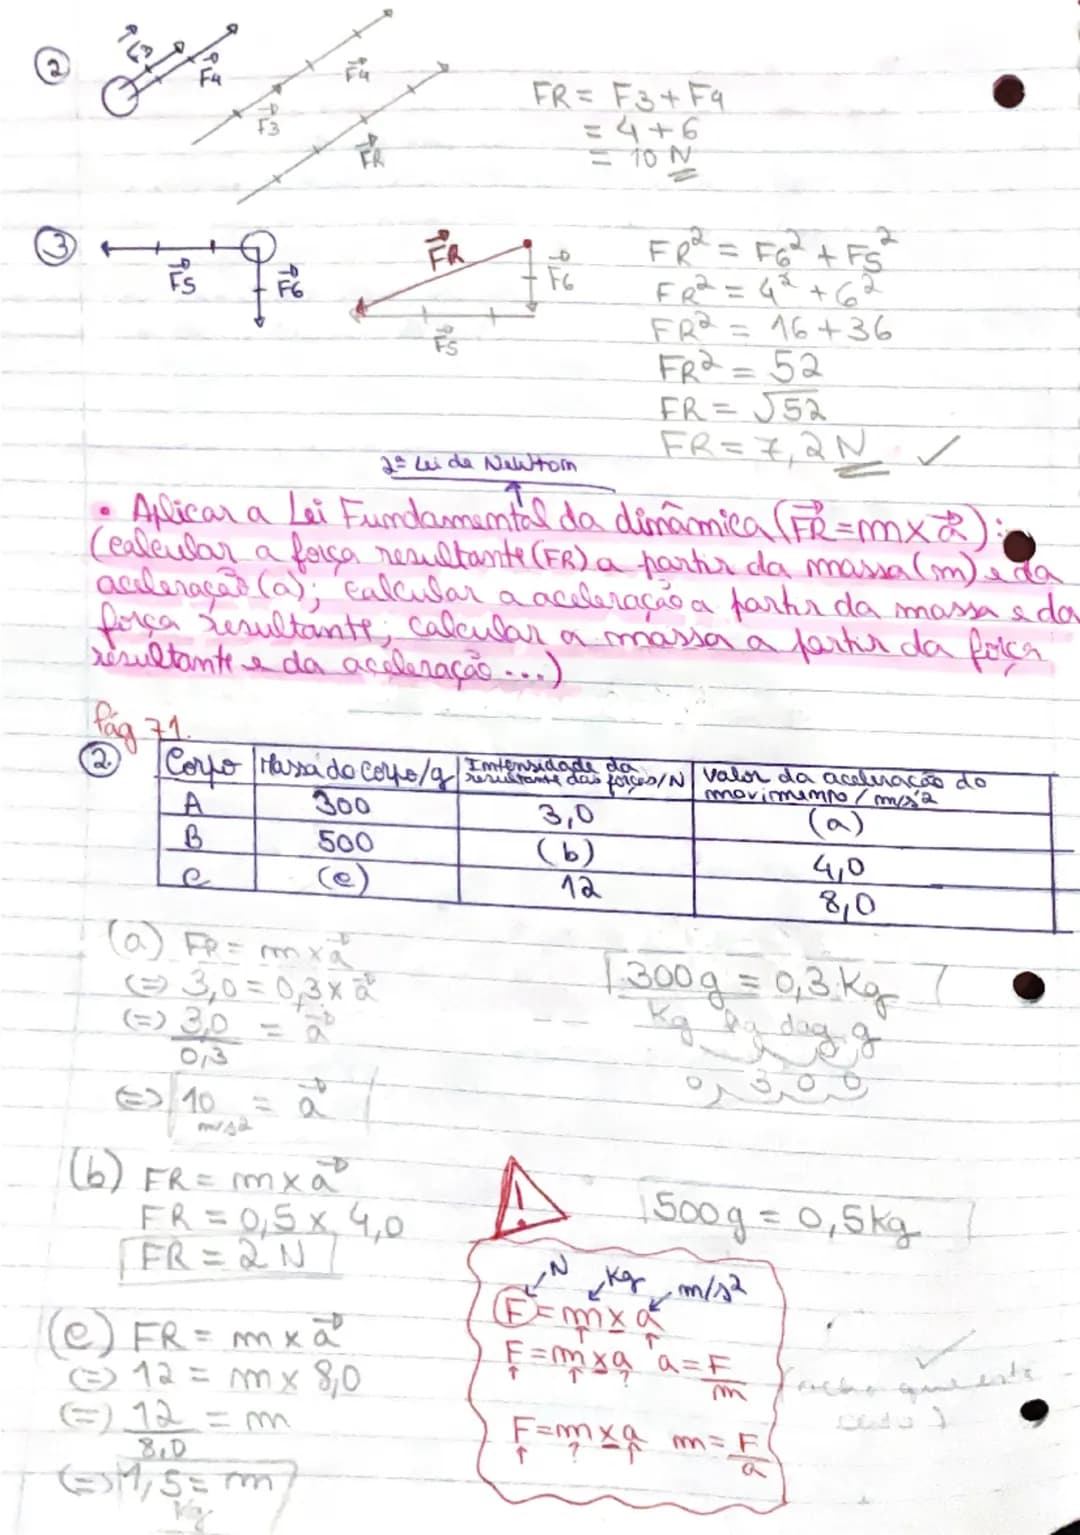 ② F3 F4 F3 F4 FR
FR = F3 + F4
= 4 + 6
= 10 N
③ F5 F6 FR F6 F5
FR² = F6² + F5²
FR² = 4² + 6²
FR² = 16 + 36
FR² = 52
FR = √52
FR = 7,2 N ✓
2ª Lei de Newton
• Aplicar a Lei Fundamental da dinâmica (FR = m x a):
(calcular a força resultante (FR) a partir da massa (m) e da
aceleração (a); calcular a aceleração a partir da massa e da
força resultante; calcular a massa a partir da força
resultante e da aceleração ...)
Pág 71.
②
Corpo | Massa do corpo/g | Intensidade da resultante das forças/N | Valor da aceleração do movimento / m/s²
A | 300 | 3,0 | (a)
B | 500 | (b) | 4,0
C | (c) | 12 | 8,0
(a) FR = m x a
(=) 3,0 = 0,3 x a
(=) 3,0/0,3 = a
(=) 10 m/s² = a
300g = 0,3 Kg
Kg hg dag g
0, 3 0 0
(b) FR = m x a
FR = 0,5 x 4,0
FR = 2 N
500g = 0,5 kg
(c) FR = m x a
(=) 12 = m x 8,0
(=) 12/8,0 = m
(=) 1,5 = m
Kg
!
N Kg m/s²
F = m x a
F = m x a a = F/m
?
F = m x a m = F/a
?
✓